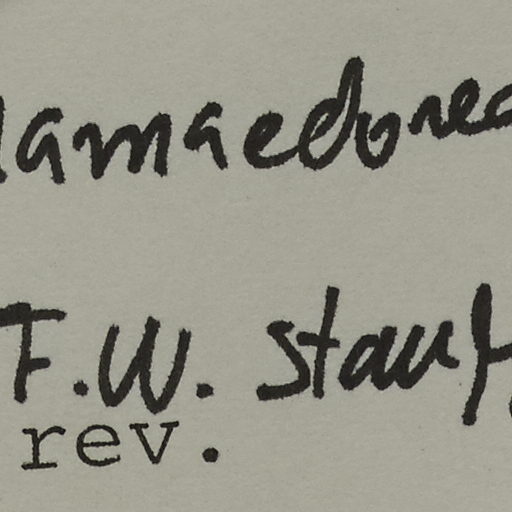 hamaedorea
F.W. Stauf
rev.